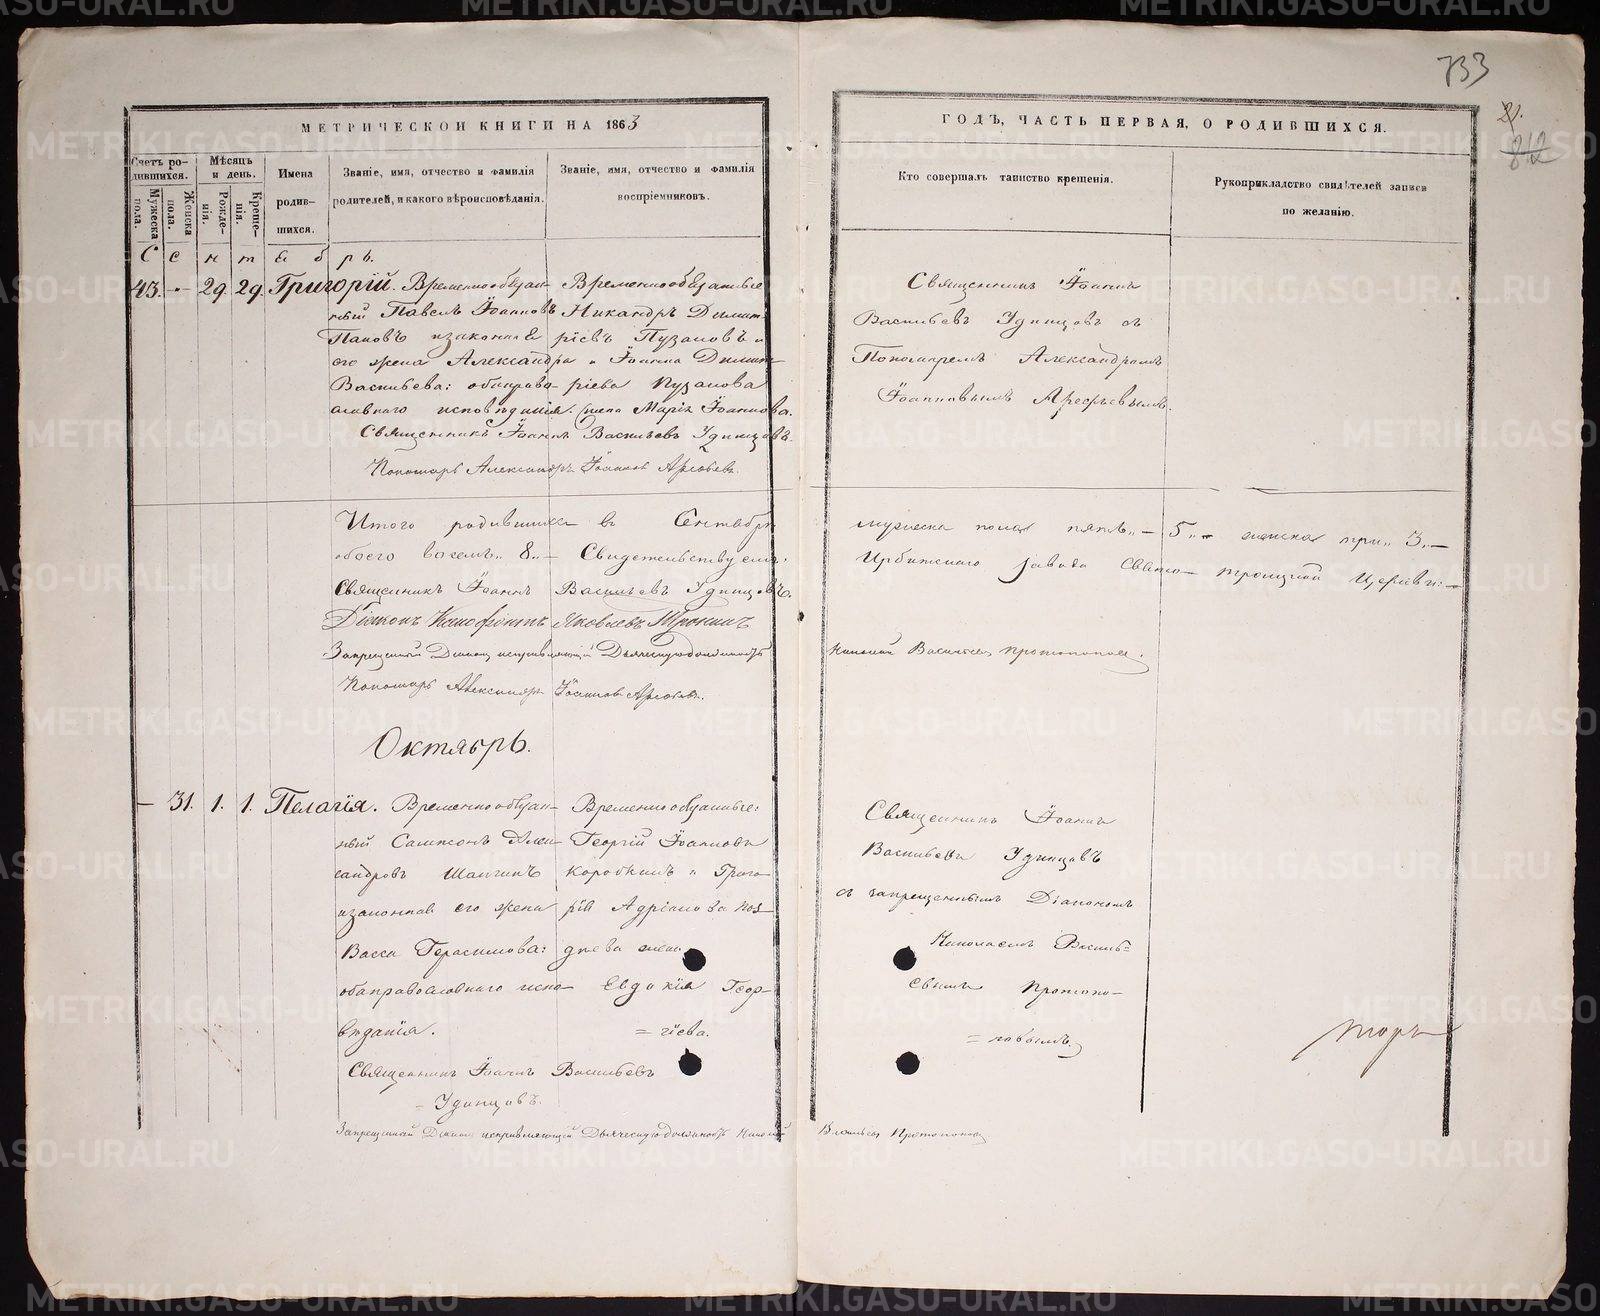 733
21.
812
МЕТРИЧЕСКОЙ КНИГИ НА 1863
ГОДЪ, ЧАСТЬ ПЕРВАЯ, О РОДИВШИХСЯ.
Счетъ ро-
дившихся.
Мужеска
пола.
Женска
пола.
Мѣсяцъ
и день.
Рожде-
нія.
Креще-
нія.
Имена
родив-
шихся.
Званіе, имя, отчество и фамилія
родителей, и какого вѣроисповѣданія.
Званіе, имя, отчество и фамилія
воспріемниковъ.
Кто совершалъ таинство крещенія.
Рукоприкладство свидѣтелей записи
по желанію.
Сентябрь.
43. — 29. 29. Григорій.
Временнообязан-
ный Павелъ Іоанновъ
Пановъ и законная
его жена Александра
Васильева: оба право-
славнаго исповѣданія.
Временнообязанные
Никандръ Димит-
ріевъ Пузановъ и
Іоанна Димит-
ріева Пузанова
жена Марія Іоаннова.
Священникъ Іоаннъ
Васильевъ Удинцовъ съ
Пономаремъ Александромъ
Іоанновымъ Арефьевымъ.
Священникъ Іоаннъ Васильевъ Удинцовъ.
Пономарь Александръ Іоанновъ Арефьевъ.
Итого родившихся въ Сентябрѣ мужеска пола пять „— 5 „— женска три „ 3 „—
обоего восемь „ 8 „— Свидетельствуемъ: Ирбитскаго завода Свято-троицкой Церкви: —
Священникъ Іоаннъ Васильевъ Удинцовъ.
Діаконъ Ксенофонтъ Яковлевъ
Запрещенный Діаконъ исправляющій Дьяческую должность Николай Васильевъ Протопоповъ.
Пономарь Александръ Іоанновъ Арефьевъ.
Октябрь.
— 31. 1. 1. Пелагія.
Временнообязан-
ный Сампсонъ Алек-
сандровъ Шангинъ
и законная его жена
Васса Герасимова:
оба православнаго испо-
вѣданія.
Временнообязанные:
Георгій Іоанновъ
Коробкинъ и Григо-
рія Адріанова Поз-
днева жена
Евдокія Геор-
= гіева.
Священникъ Іоаннъ
Васильевъ Удинцовъ
съ запрещеннымъ Діакономъ
Николаемъ Василь-
евымъ Протопо-
= повымъ.
Священникъ Іоаннъ Васильевъ
= Удинцовъ.
Запрещенный Діаконъ исправляющій Дьяческую должность Николай Васильевъ Протопоповъ